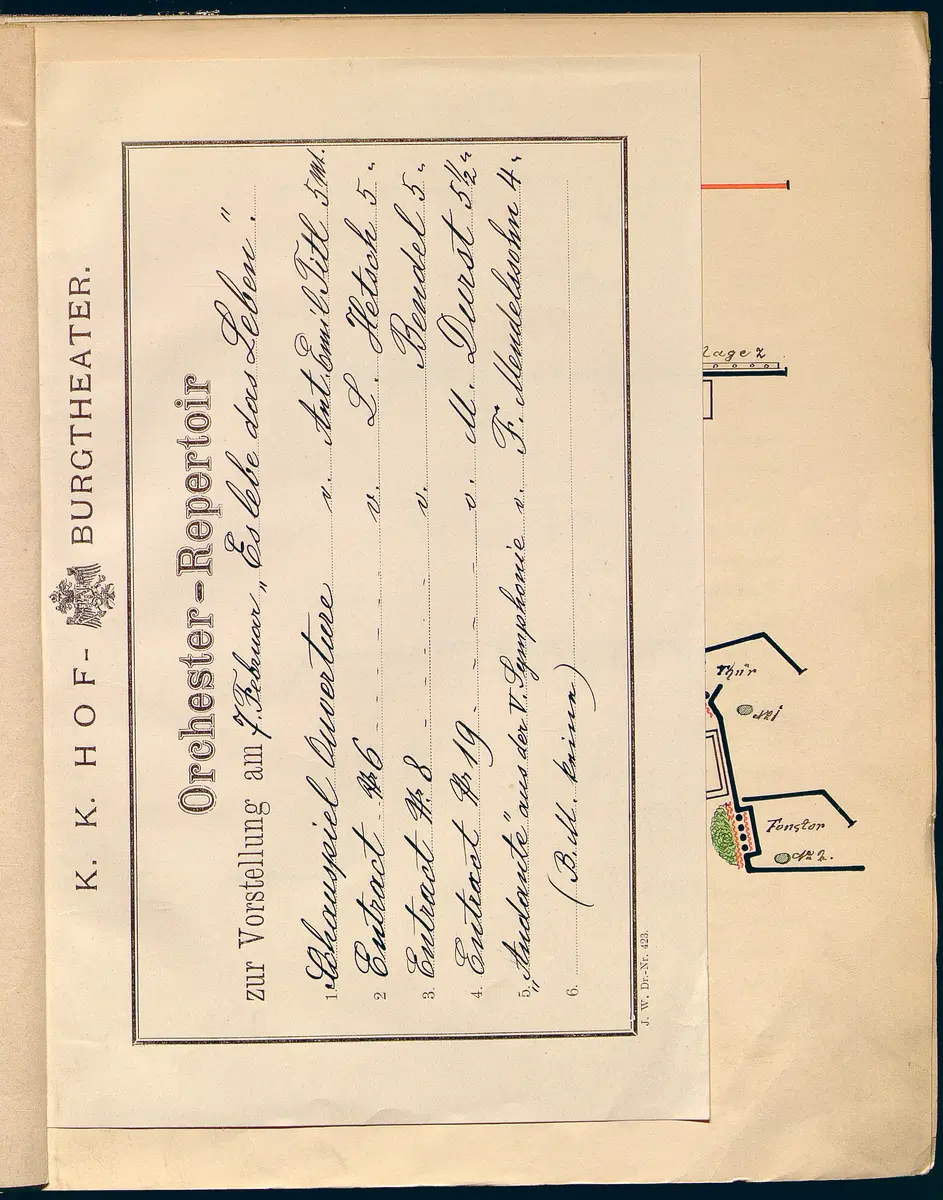 K. K. HOF- BURGTHEATER.
Orchester-Repertoir
zur Vorstellung am 7. Februar „Es lebe das Leben".
1. Schauspiel Ouverture v. Ant. Emil Titl 5 Mt.
2 Entract - № 6 - - - - v. L. Hetsch 5 "
3. Entract № 8 - - - - v. Bendel 5 "
4. Entract № 19 - - - - v. M. Durst 5½ "
5. „Andante" aus der V. Symphonie v. F. Mendelsohn 4 "
6.
(B. M. keine)
J. W. Dr.-Nr. 423.
lage 2
Thür
№ 1
Fenster
№ 2.